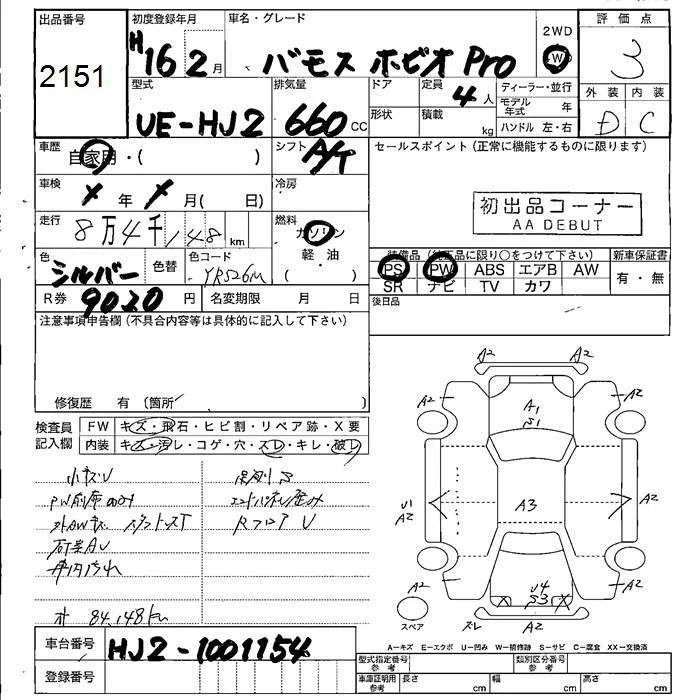 出品番号 初度登録年月 車名・グレード 2WD 評価点
2151 H16 2月 バモス ホビオ Pro 4WD 3
型式 排気量 ドア 定員 ディーラー・並行 外装 内装
4人 モデル年式 年
UE-HJ2 660 CC 形状 積載 kg ハンドル 左・右 D C
車歴 自家用・( ) シフト A/T セールスポイント(正常に機能するものに限ります)
車検 年 月( 日) 冷房
初出品コーナー
AA DEBUT
走行 8万4千148km 燃料 ガソリン
軽・油
( )
色 シルバー 色替 色コード YR526M
装備品(純正品に限り○をつけて下さい) 新車保証書
PS PW ABS エアB AW 有・無
SR ナビ TV カワ
R券 9020円 名変期限 月 日 後日品
注意事項申告欄(不具合内容等は具体的に記入して下さい)
修復歴 有〔箇所
検査員 FW キズ・飛石・ヒビ割・リペア跡・X要
記入欄 内装 キズ・汚レ・コゲ・穴・スレ・キレ・破レ
小キズU
エンドパネル歪み
RフロアU
オ 84,148km
A2 A2
A2 A2
A1
S1
U1
A2
A3
A2
A2 U4
S3
A2
スペア スレ A2
A−キズ E−エクボ U−凹み W−補修跡 S−サビ C−腐食 XX−交換済
車台番号 HJ2-1001154
登録番号
型式指定番号 参考 類別区分番号 参考
車庫証明用 参考 長さ cm 幅 cm 高さ cm